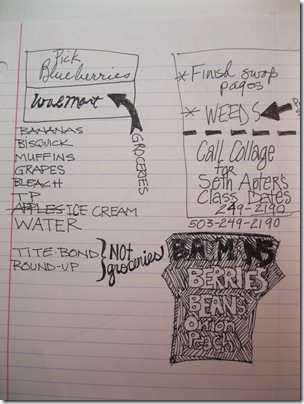 Pick
Blueberries
Walmart
GROCERIES
BANANAS
BISQUICK
MUFFINS
GRAPES
BLEACH
TP
APPLES ICE CREAM
WATER
TITE-BOND
ROUND-UP
NOT
groceries
* Finish swap
pages
* WEEDS
Call Collage
for
Seth Apter's
Class Dates
249-2190
503-249-2190
BERRIES
BEANS
Onion
Peach